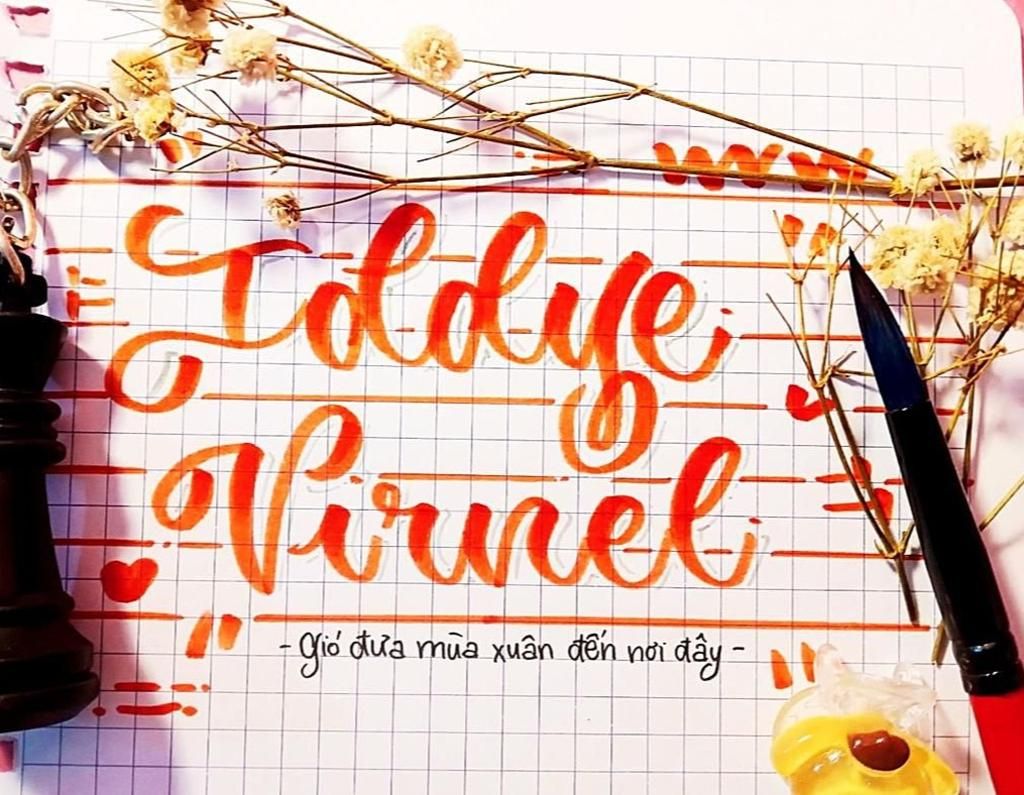 Toldye
Virnel
- Gió đưa mùa xuân đến nơi đây -